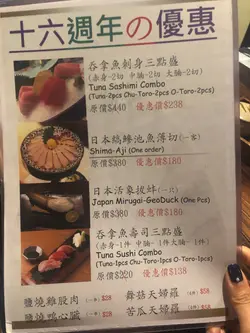 十六週年の優惠
吞拿魚刺身三點盛
(赤身-2切 中腩-2切 大腩-2切)
Tuna Sashimi Combo
(Tuna-2pcs Chu-Toro-2pcs O-Toro-2pcs)
原價$440 優惠價$238
日本縞鰺池魚薄切(一客)
Shima-Aji (One order)
原價$380 優惠價$180
日本活象拔蚌(一隻)
Japan Mirugai-GeoDuck (One Pcs)
原價$380 優惠價$180
吞拿魚壽司三點盛
(赤身-1件 中腩-1件 大腩-1件)
Tuna Sushi Combo
(Tuna-1pcs Chu-Toro-1pcs O-Toro-1pcs)
原價$220 優惠價$138
鹽燒雞股肉 $28
舞菇天婦羅 $28
鹽燒鴨心臟 $28
苦瓜天婦羅 $28